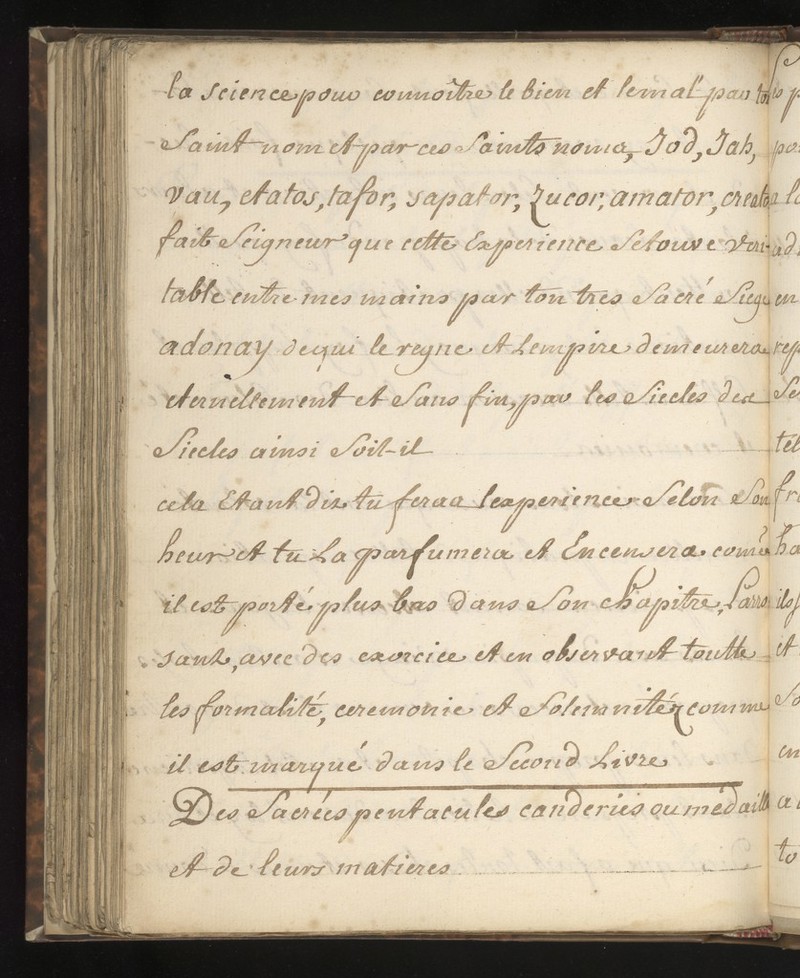 la science pour connoître le bien et le mal par ton
Saint nom et par ces Saints noms, Iod, Iah,
vau, etatos, tafor, sapator, Zucor, amator, creator
fait Seigneur que cette Experience Se touve veri-
table entre mes mains par ton tres Sacré Siege
adonay de qui le regne et Lempire demeurera
eternellement et Sans fin, par les Siecles des
Siecles ainsi Soit-il
cela Etant dit tu feras lexperience Selon Son
heur et tu La parfumera et Encensera come
il est porté plus bas dans Son chapitre, Larro
sant, avec des exorcice et en observant toutte
les formalité, ceremonie et Solemnitéz comme
il est marqué dans le Second Livre
Des Sacrées pentacules canderies ou medaille
et de leurs matieres